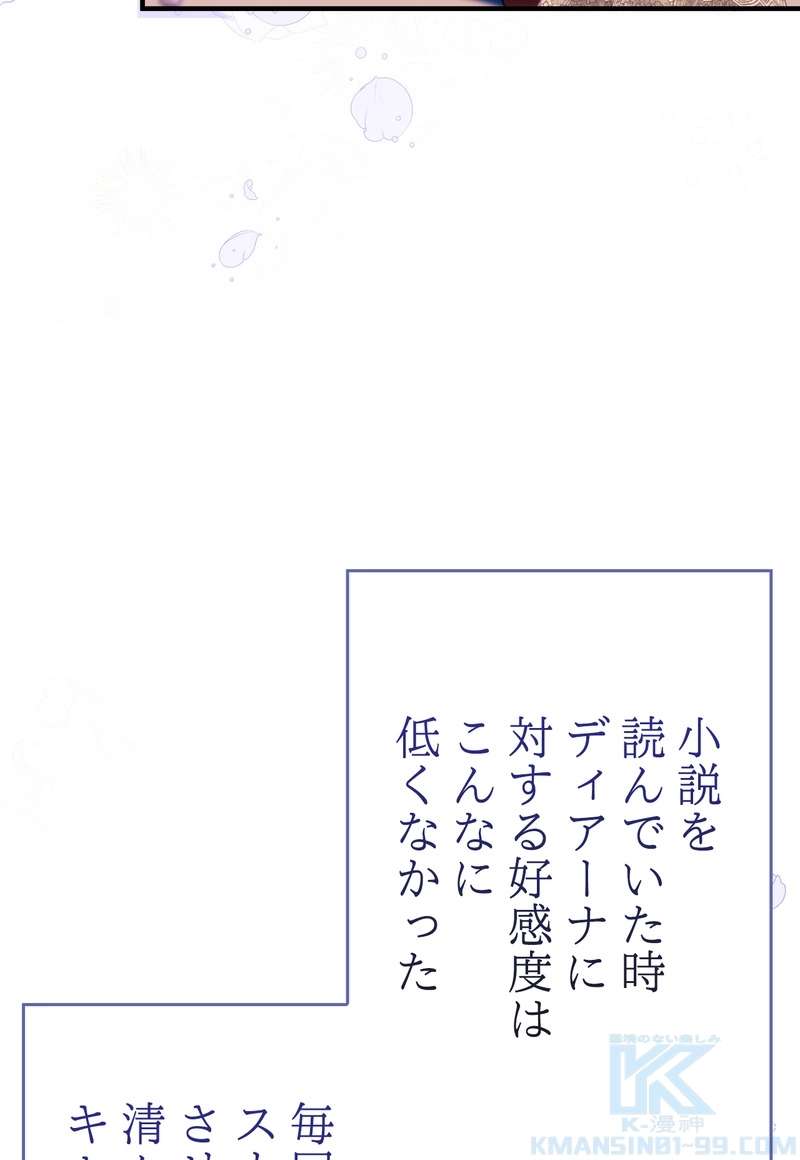 小説を
読んでいた時
ディアーナに
対する好感度は
こんなに
低くなかった
毎
ス
さ
清
キ
限界のない楽しみ
K-漫神
KMANSIN01-99.COM